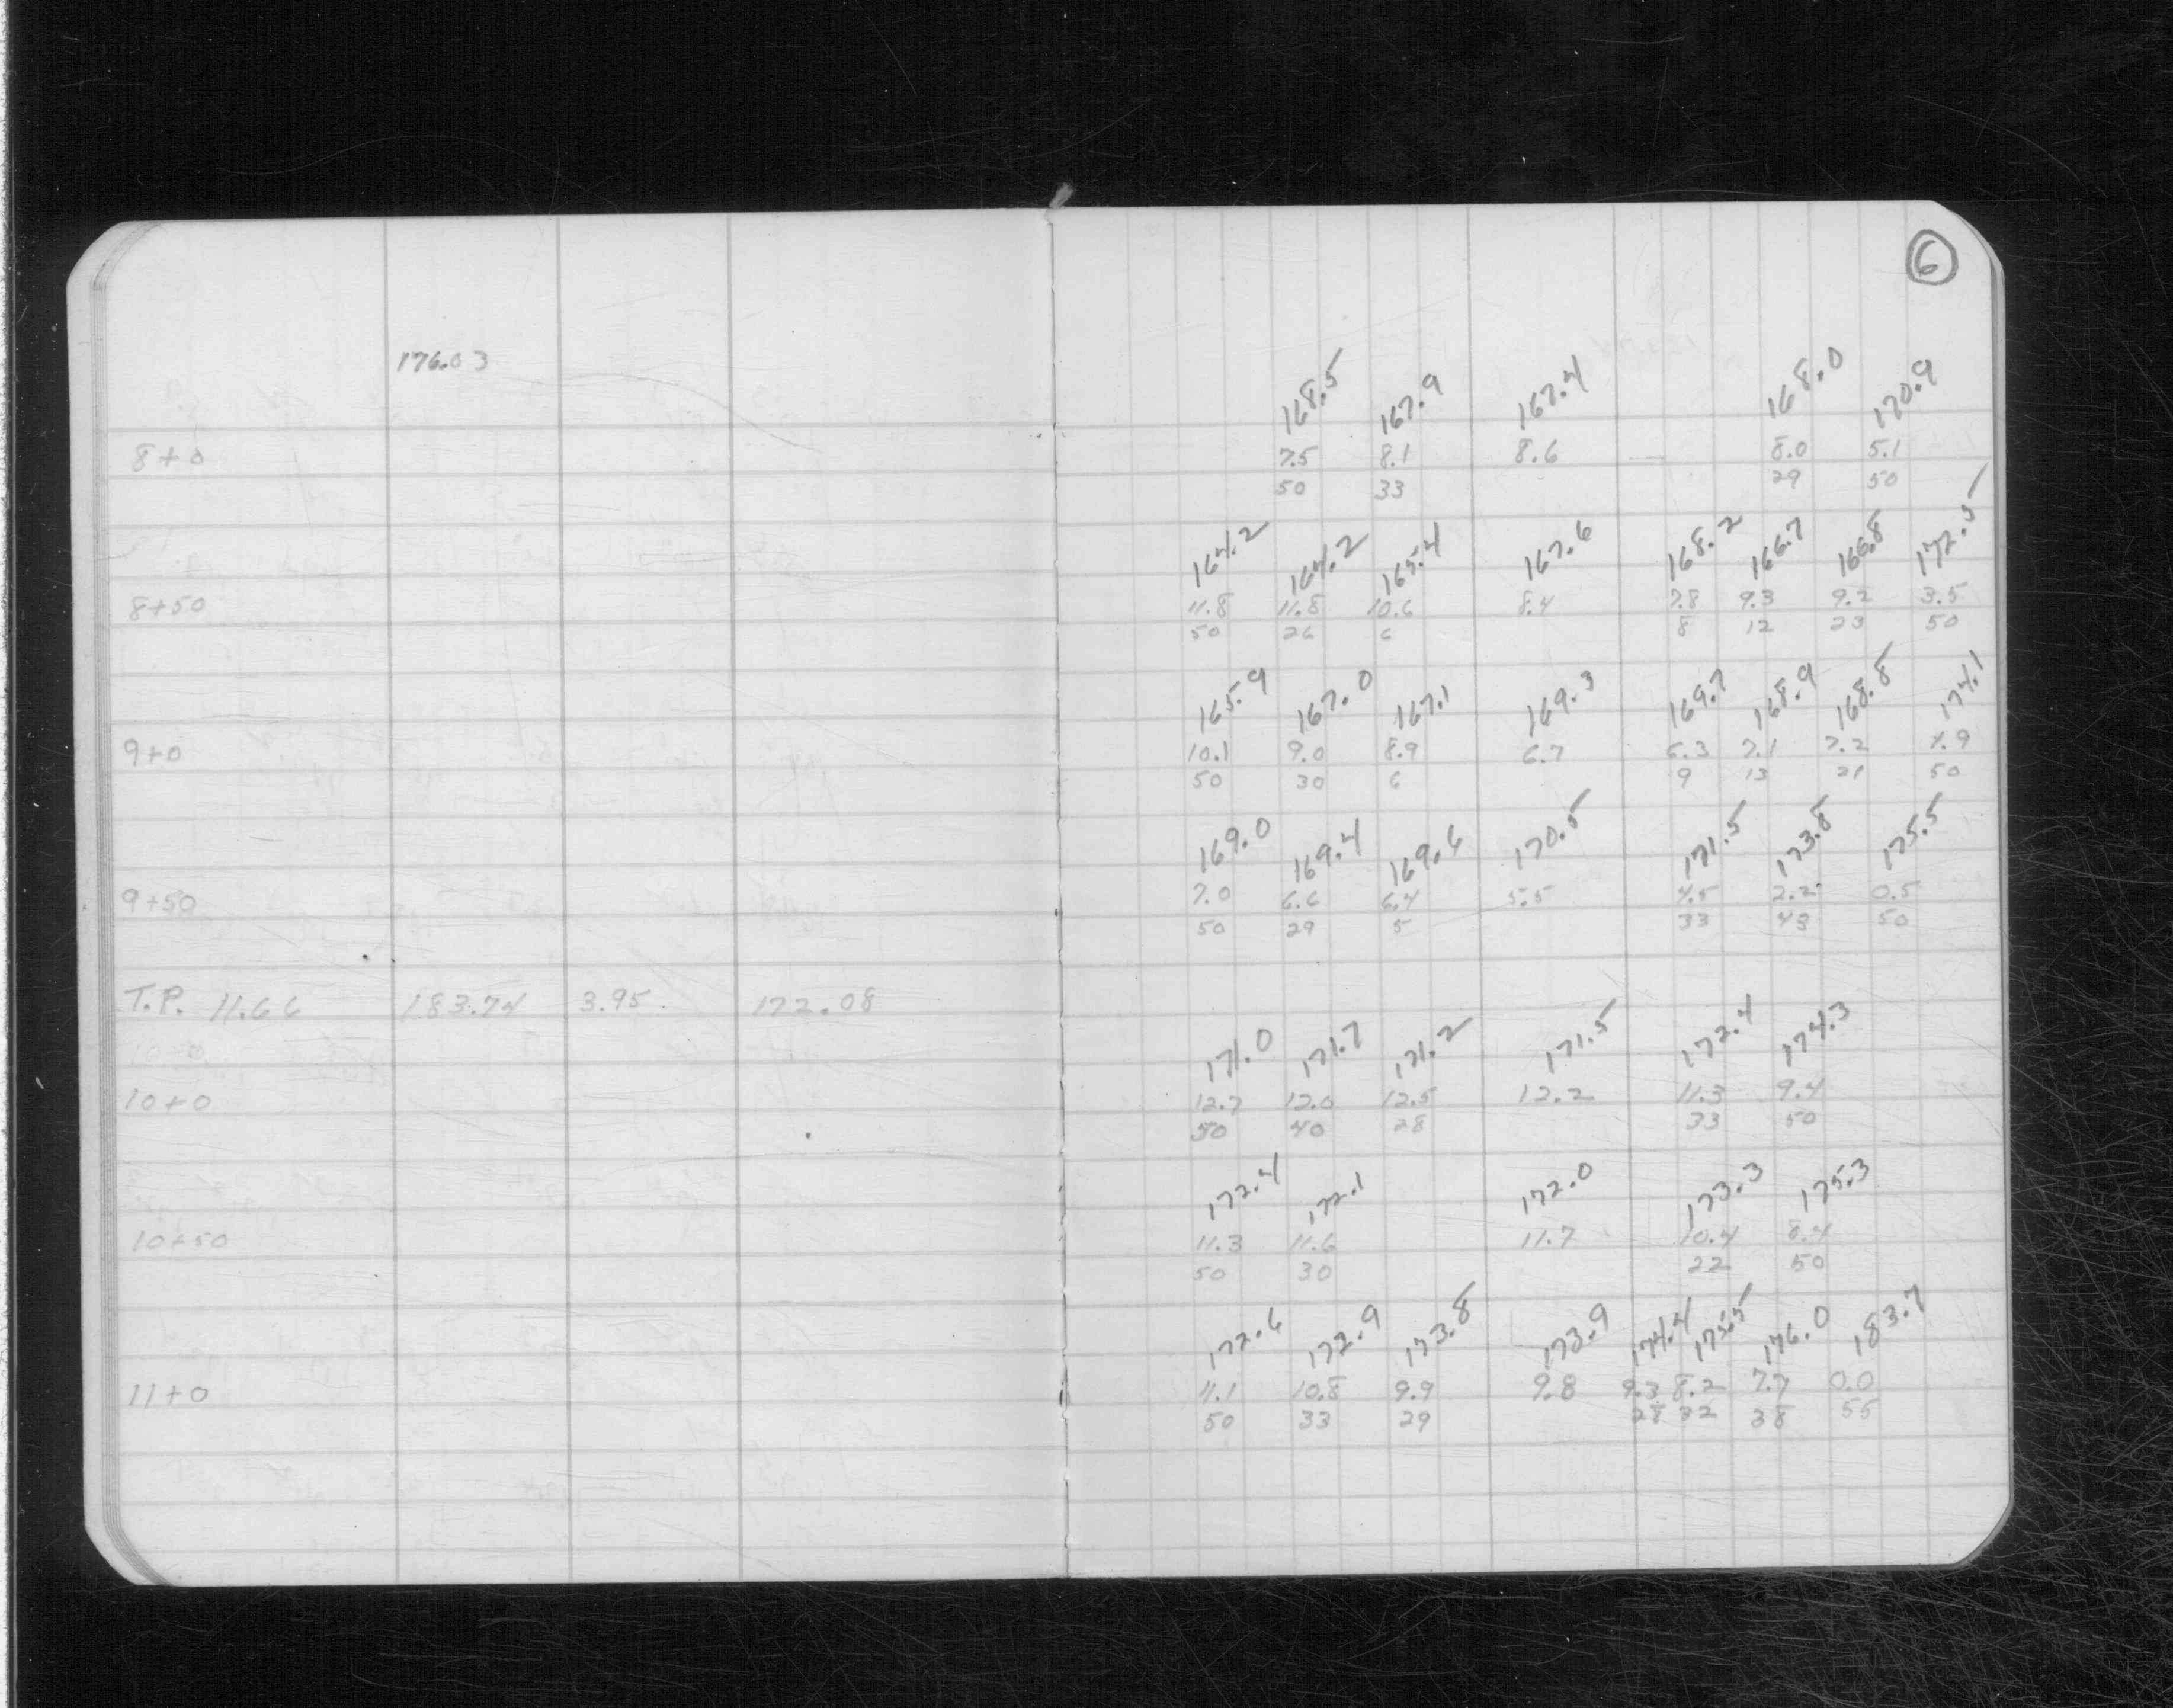 6
176.03
168.5 167.9 167.4 168.0 170.9
8+0 7.5 8.1 8.6 8.0 5.1
50 33 29 50
164.2 164.2 165.4 167.6 168.2 166.7 166.8 172.5
8+50 11.8 11.8 10.6 8.4 7.8 9.3 9.2 3.5
50 26 6 8 12 23 50
165.9 167.0 167.1 169.3 169.7 168.9 168.8 174.1
9+0 10.1 9.0 8.9 6.7 6.3 7.1 7.2 1.9
50 30 6 9 13 21 50
169.0 169.4 169.6 170.5 171.5 173.8 175.5
9+50 7.0 6.6 6.4 5.5 4.5 2.2 0.5
50 29 5 33 43 50
T.P. 11.66 183.74 3.95 172.08
171.0 171.7 171.2 171.5 172.4 174.3
10+0 12.7 12.0 12.5 12.2 11.3 9.4
50 40 28 33 50
172.4 172.1 172.0 173.3 175.3
10+50 11.3 11.6 11.7 10.4 8.4
50 30 22 50
172.6 172.9 173.8 173.9 174.4 175.5 176.0 183.7
11+0 11.1 10.8 9.9 9.8 9.3 8.2 7.7 0.0
50 33 29 28 32 38 55